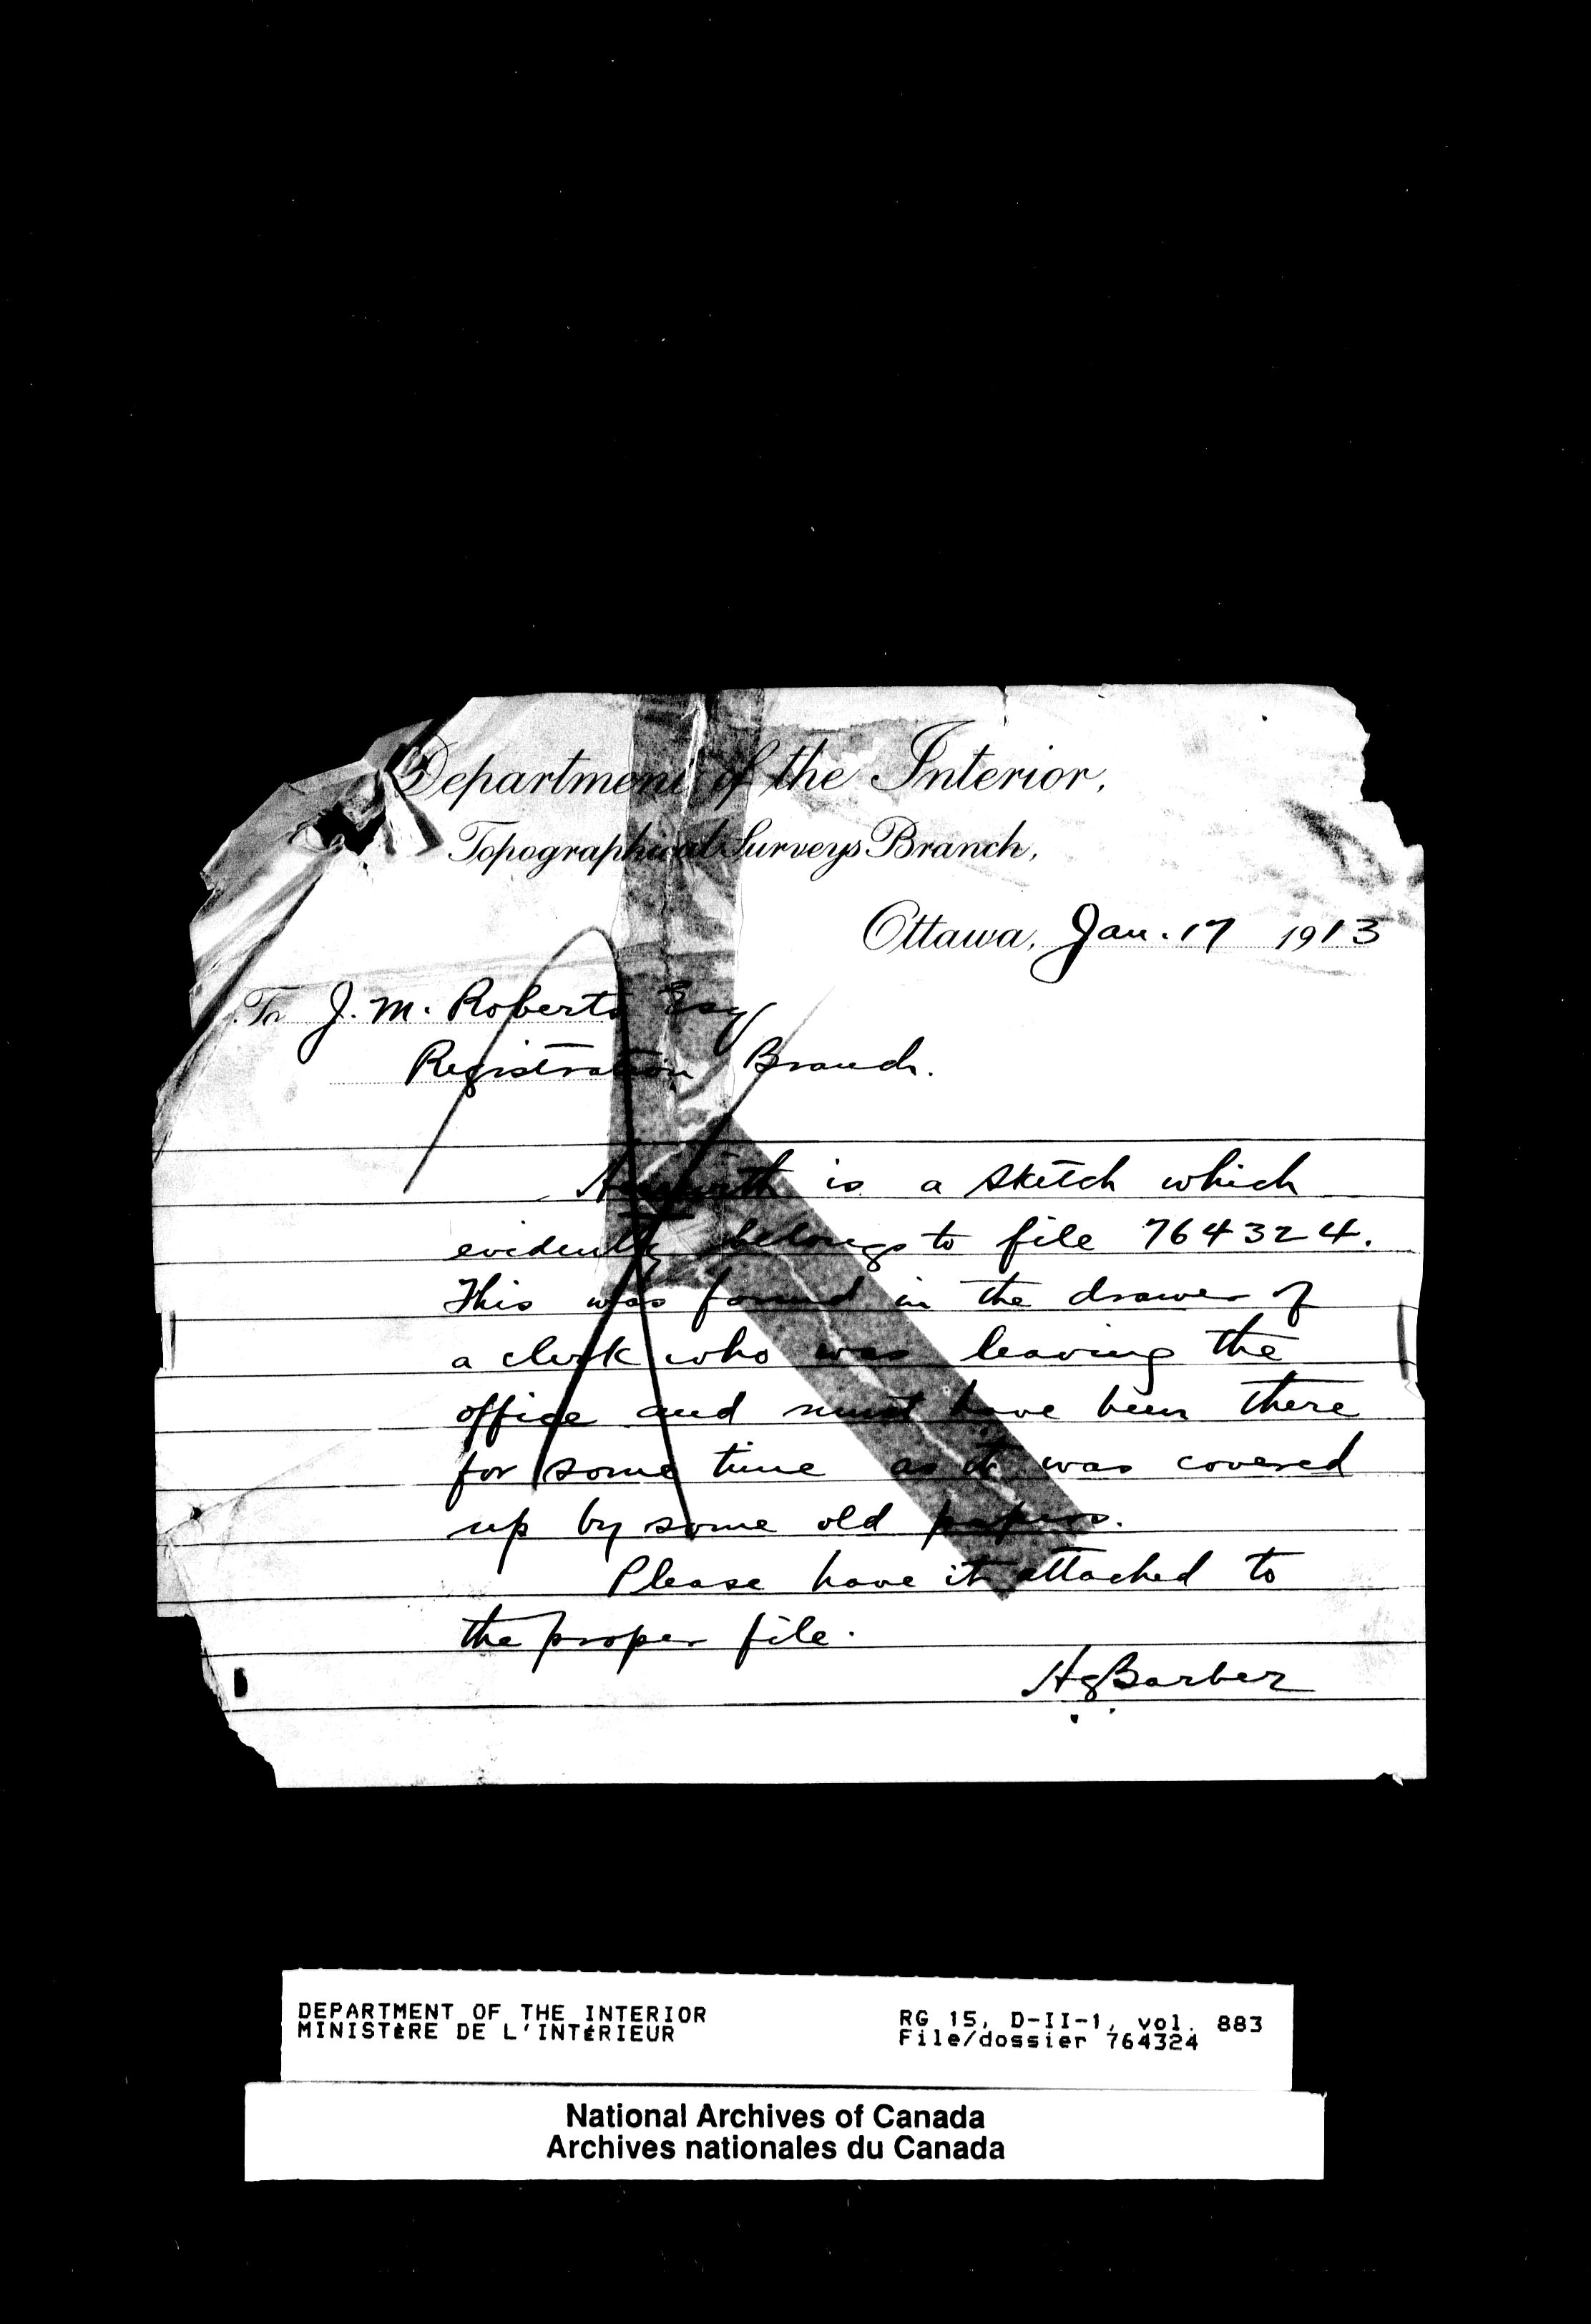 Department of the Interior,
Topographical Surveys Branch,
Ottawa, Jan. 17 1913
To J. M. Roberts Esq
Registration Branch.
Herewith is a sketch which
evidently belongs to file 764324.
This was found in the drawer of
a clerk who was leaving the
office and must have been there
for some time as it was covered
up by some old papers.
Please have it attached to
the proper file.
HGBarber
DEPARTMENT OF THE INTERIOR
MINISTÈRE DE L'INTÉRIEUR
RG 15, D-II-1, vol. 883
File/dossier 764324
National Archives of Canada
Archives nationales du Canada